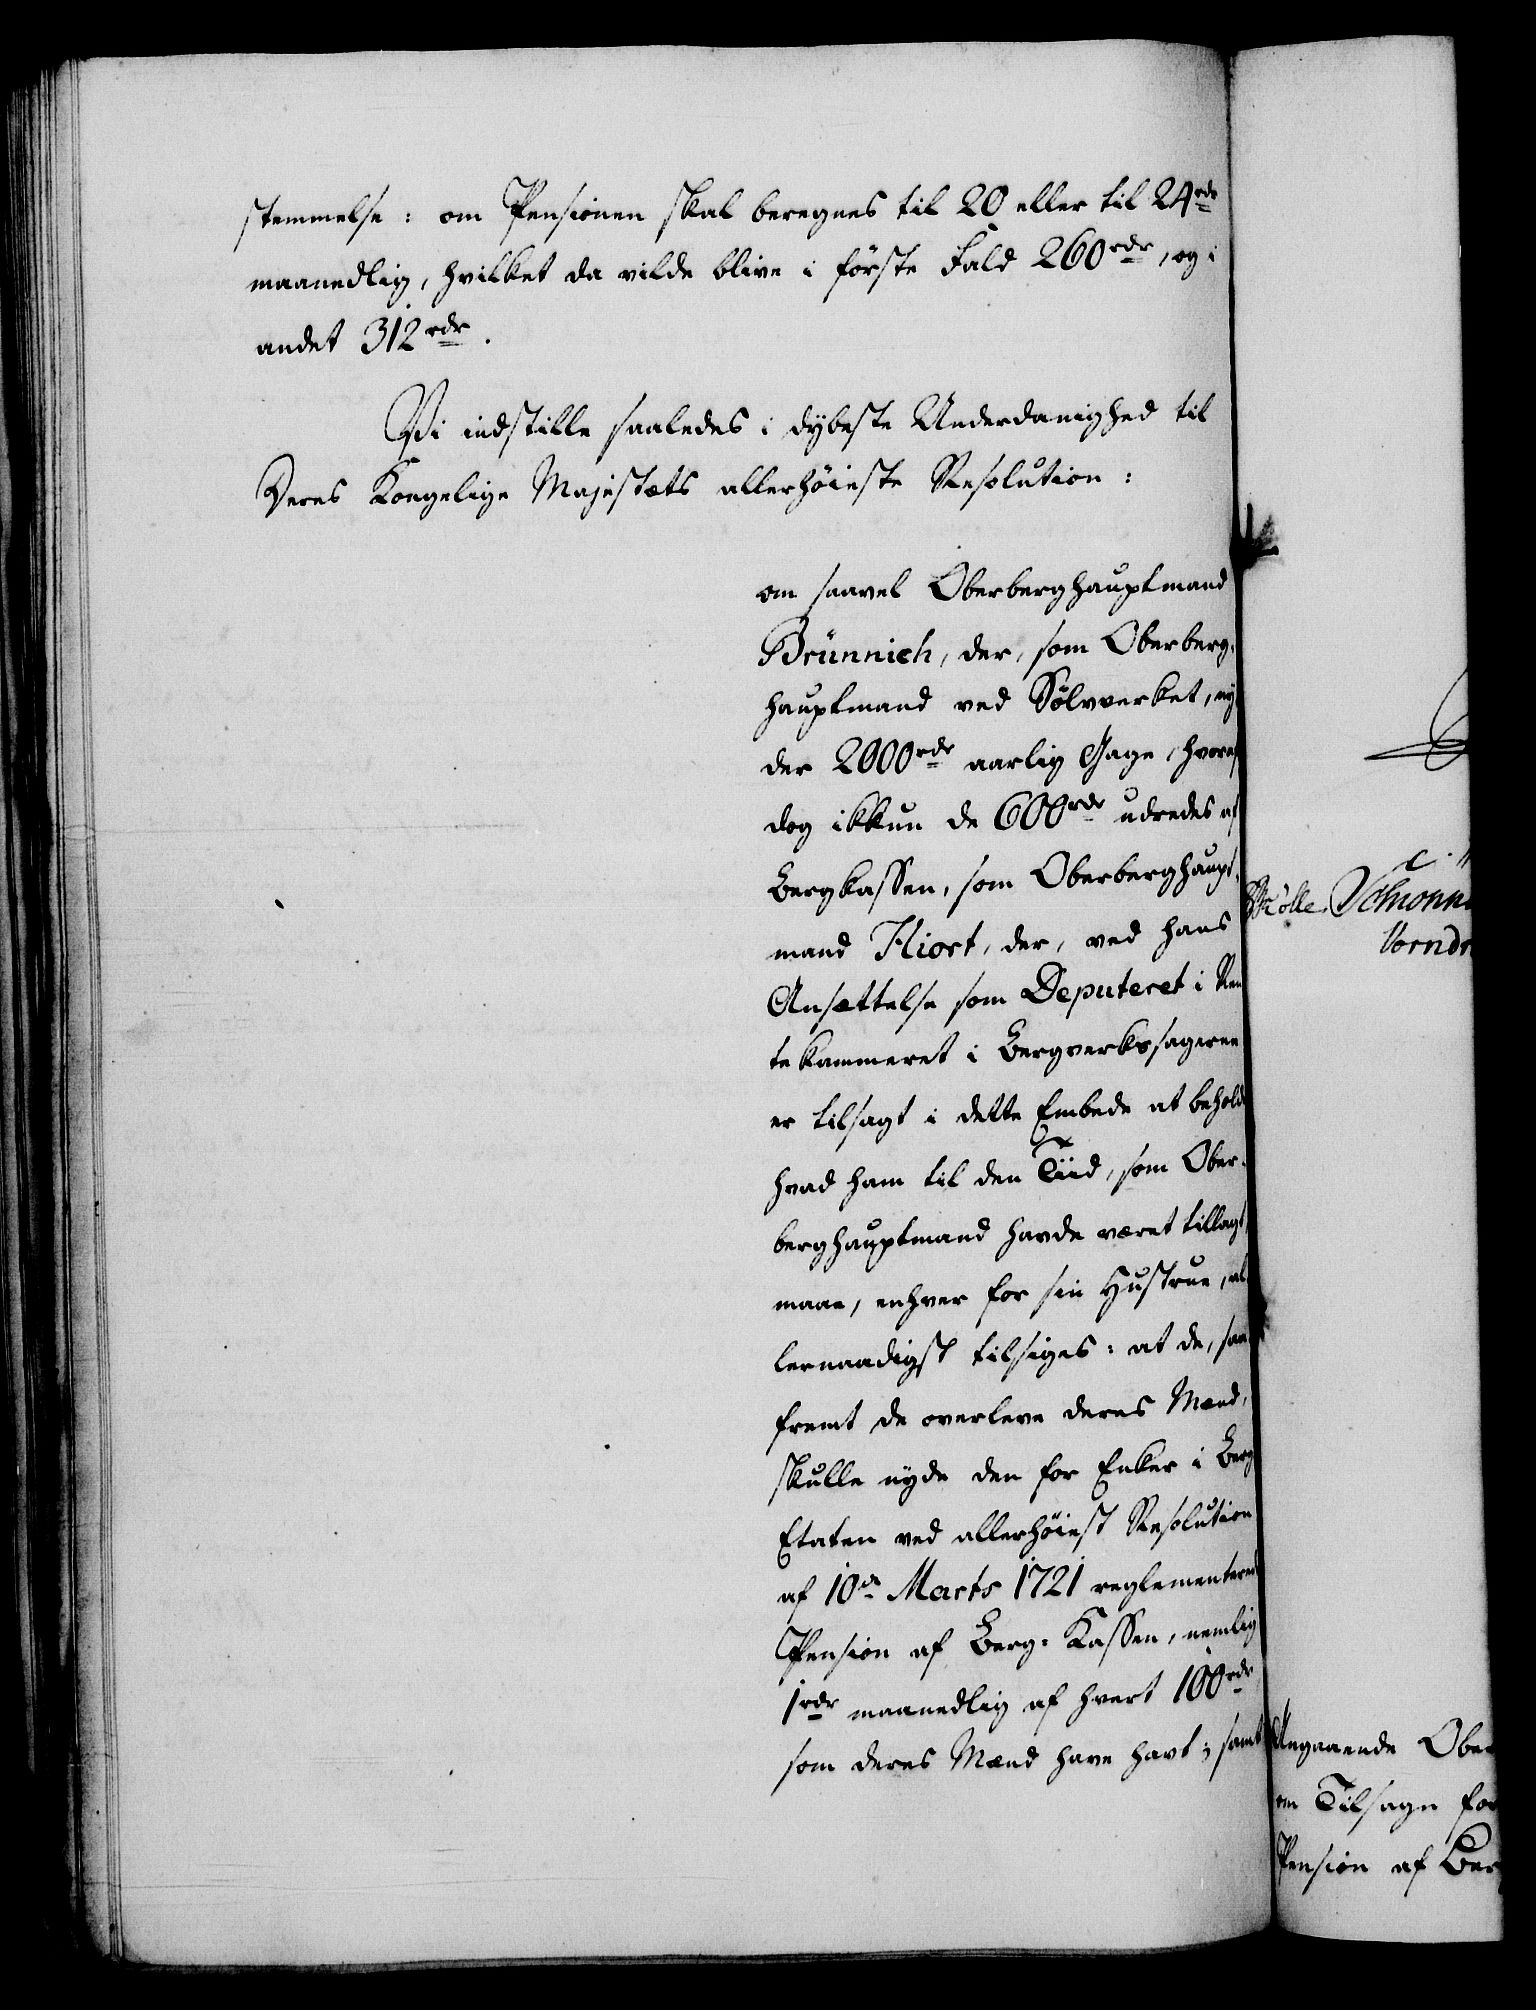 stemmelse: om Pensionen skal beregnes til 20 eller til 24 rdr
maanedlig, hvilket da vilde blive i förste Fald 260 rdr, og i
andet 312 rdr.
Vi indstille saaledes i dÿbeste Underdanighed til
Deres Kongelige Majestæts allerhöieste Resolution:
om saavel Oberberghauptmand
Brünnich, der, som Oberberg-
hauptmand ved Sölvverket, nÿ
der 2000 rdr aarlig Gage, hvoraf
dog ikkun de 600 rdr udredes af
Bergkassen, som Oberberghaupt-
mand Hiort, der, ved hans
Ansættelse som Deputeret i Ren
tekammeret i Bergverkssagerne
er tilsagt i dette Embede at beholde
hvad ham til den Tiid, som Ober-
berghauptmand havde været tillagt,
maae, enhver for sin Hustrue, al
lernaadigst tilsiges: at de, saa
fremt de overleve deres Mænd,
skulle nÿde den for Enker i Berg
Etaten ved allerhöiest Resolution
af 10de Marts 1721 reglementerede
Pension af Berg-Kassen, nemlig
1 rdr maanedlig af hvert 100 rdr
som deres Mænd have havt; samt
Angaaende Ober
om Tilsagn for
Pension af Ber